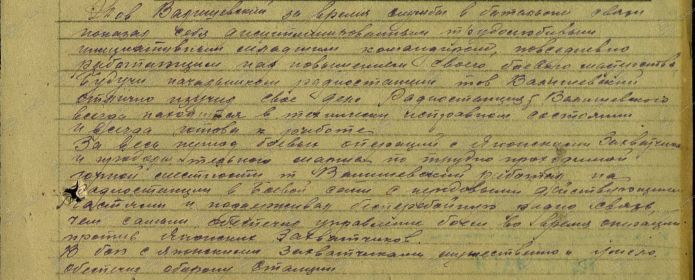 Тов Валишевский за время службы в батальоне связи
показал себя дисциплинированным трудолюбивым
инициативным младшим командиром, повседневно
работающим над повышением своего боевого мастерства
Будучи начальником радиостанции тов Валишевский
отлично изучил свое дело Радиостанция Валишевского
всегда находится в технически исправном состоянии
и всегда готова к работе
За весь период боевых операций с Японскими Захватчиками
и марша по трудно проходимой
горной местности т Валишевский работал на
радиостанции в боевой сети с передовыми действующими
частями и поддерживал бесперебойную радио связь,
чем самым обеспечив управление боем во время операции
против Японских Захватчиков.
В бою с Японскими Захватчиками мужественно и умело
обеспечил оборону станции